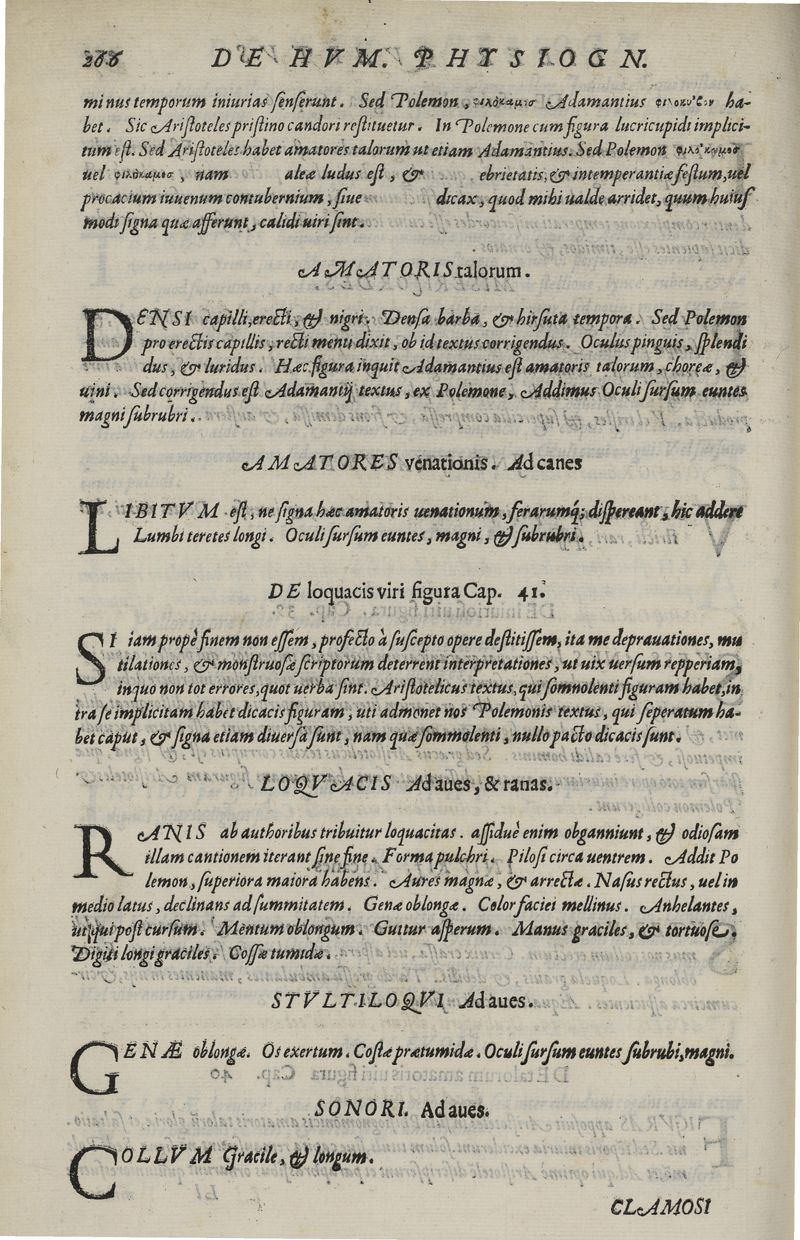 266 DE HVM. PHYSIOGN.
minus temporum iniurias senserunt. Sed Polemon, φιλόκαμοσ Adamantius ha-
bet. Sic Aristoteles pristino candori restituetur. In Polemone cum figura lucricupidi implici-
tum est. Sed Aristoteles habet amatores talorum ut etiam Adamantius. Sed Polemon φιλόκυμοσ
uel φιλόκαμοσ, nam aleæ ludus est, & ebrietatis, & intemperantiæ festum, uel
procacium iuuenum contubernium, siue dicax, quod mihi ualde arridet, quum huius
modi signa quæ afferunt, calidi uiri sint.
AMATORIS talorum.
DENSI capilli, erecti, & nigri. Densa barba, & hirsuta tempora. Sed Polemon
pro erectis capillis, recti menti dixit, ob id textus corrigendus. Oculus pinguis, splendi
dus, & luridus. Hæc figura inquit Adamantius est amatoris talorum, choreæ, &
uini. Sed corrigendus est Adamantij textus, ex Polemone, Addimus Oculi sursum euntes
magni subrubri.
AMATORES venationis. Ad canes
LIBITVM est, ne signa hæc amatoris uenationum, ferarumq́; dispereant, hic addere
Lumbi teretes longi. Oculi sursum euntes, magni, & subrubri.
DE loquacis viri figura Cap. 41.
SI iam propè finem non essem, profecto à suscepto opere destitissem, ita me deprauationes, mu
tilationes, & monstruosæ scriptorum deterrent interpretationes, ut uix uersum repperiam,
in quo non tot errores, quot uerba sint. Aristotelicus textus, qui somnolenti figuram habet, in
tra se implicitam habet dicacis figuram, uti admonet nos Polemonis textus, qui seperatum ha-
bet caput, & signa etiam diuersa sunt, nam quæ sommolenti, nullo pacto dicacis sunt.
LOQVACIS Ad aues, & ranas.
RANIS ab authoribus tribuitur loquacitas. assiduè enim obganniunt, & odiosam
illam cantionem iterant sine fine. Forma pulchri. Pilosi circa uentrem. Addit Po
lemon, superiora maiora habens. Aures magnæ, & arrectæ. Nasus rectus, uel in
medio latus, declinans ad summitatem. Genæ oblongæ. Color faciei mellinus. Anhelantes,
ut qui post cursum. Mentum oblongum. Guttur asperum. Manus graciles, & tortuose.
Digiti longi graciles. Cossæ tumidæ.
STVLTILOQVI Ad aues.
GENÆ oblongæ. Os exertum. Costæ prætumidæ. Oculi sursum euntes subrubi, magni.
SONORI. Ad aues.
COLLVM Gracile, & longum.
CLAMOSI